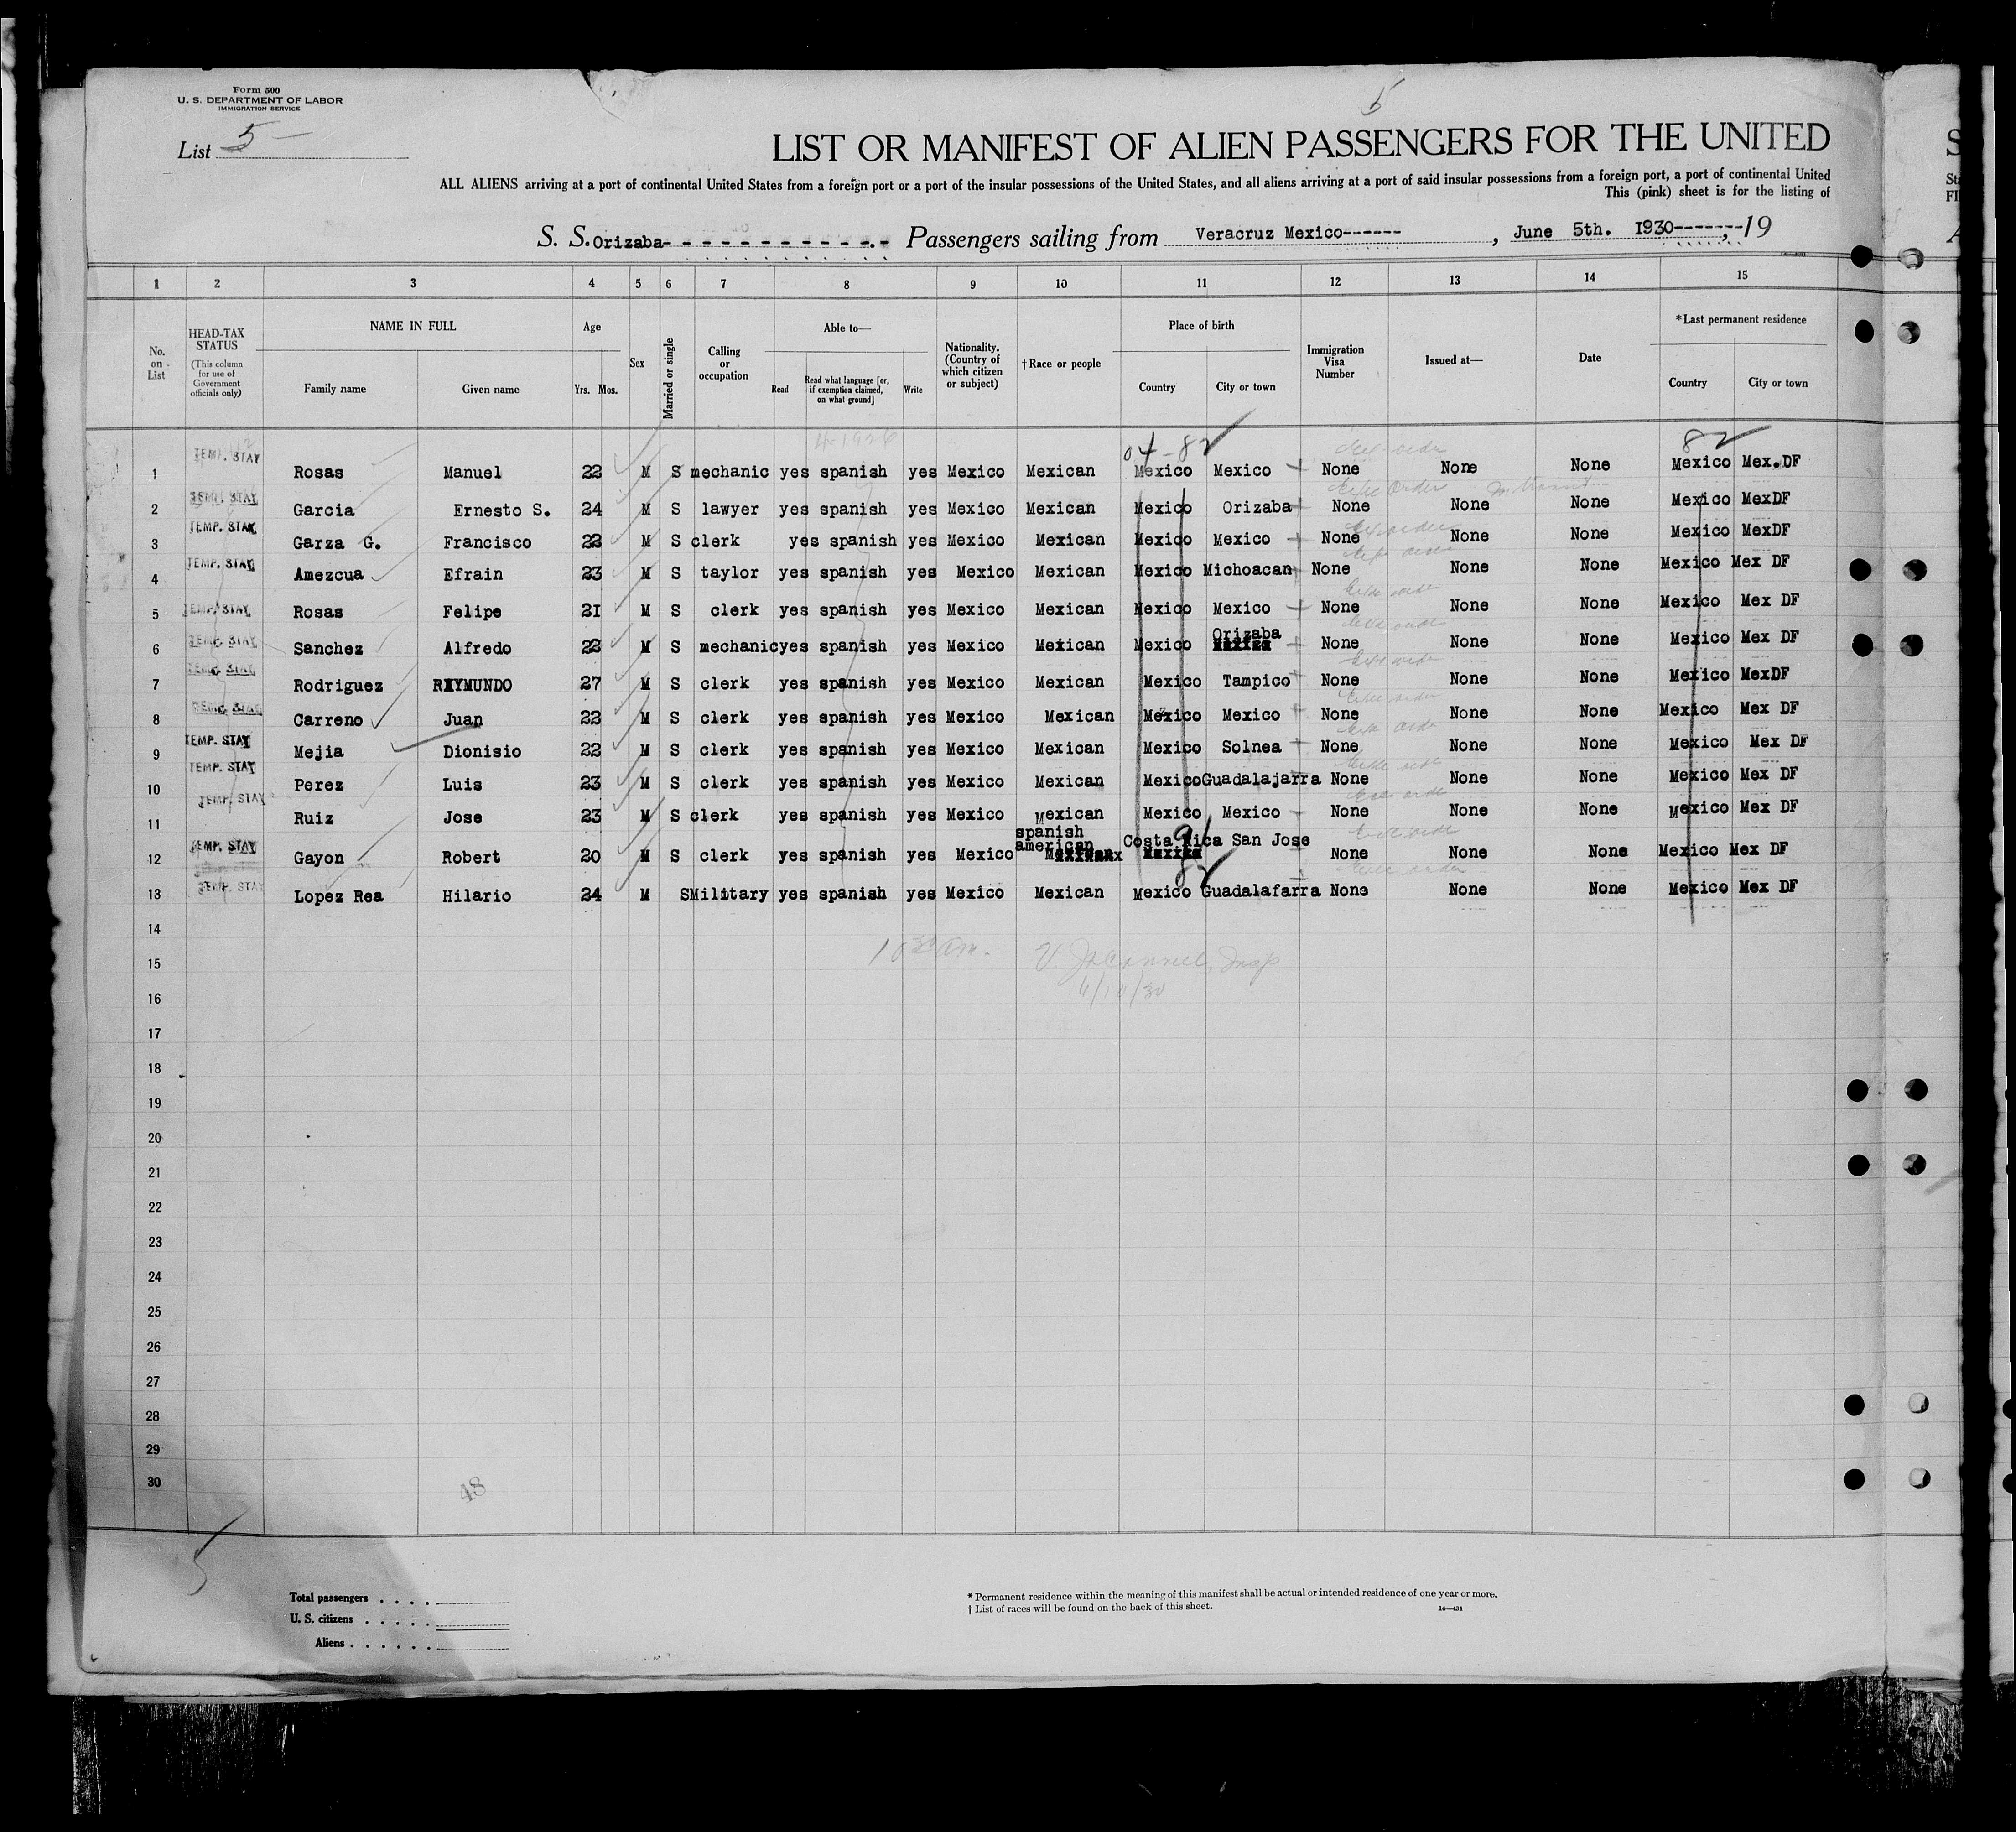 Form 500
U. S. DEPARTMENT OF LABOR
IMMIGRATION SERVICE
5
List 5
LIST OR MANIFEST OF ALIEN PASSENGERS FOR THE UNITED
ALL ALIENS arriving at a port of continental United States from a foreign port or a port of the insular possessions of the United States, and all aliens arriving at a port of said insular possessions from a foreign port, a port of continental United
This (pink) sheet is for the listing of
S. S. Orizaba- - - - - - - - - - - - - Passengers sailing from Veracruz Mexico------, June 5th. 1930-------, 19
1 2 3 4 5 6 7 8 9 10 11 12 13 14 15
No. on List
HEAD-TAX STATUS
(This column for use of Government officials only)
NAME IN FULL
Family name Given name
Age
Yrs. Mos.
Sex
Married or single
Calling or occupation
Able to—
Read
Read what language [or, if exemption claimed, on what ground]
Write
Nationality. (Country of which citizen or subject)
† Race or people
Place of birth
Country City or town
Immigration Visa Number
Issued at—
Date
*Last permanent residence
Country City or town
4-1926 04-82 82
1 TEMP. STAY Rosas Manuel 22 M S mechanic yes spanish yes Mexico Mexican Mexico Mexico None None None Mexico Mex.DF
2 TEMP. STAY Garcia Ernesto S. 24 M S lawyer yes spanish yes Mexico Mexican Mexico Orizaba None None None Mexico MexDF
3 TEMP. STAY Garza G. Francisco 23 M S clerk yes spanish yes Mexico Mexican Mexico Mexico None None None Mexico MexDF
4 TEMP. STAY Amezcua Efrain 23 M S taylor yes spanish yes Mexico Mexican Mexico Michoacan None None None Mexico Mex DF
5 TEMP. STAY Rosas Felipe 21 M S clerk yes spanish yes Mexico Mexican Mexico Mexico None None None Mexico Mex DF
6 TEMP. STAY Sanchez Alfredo 22 M S mechanic yes spanish yes Mexico Mexican Mexico Orizaba None None None Mexico Mex DF
7 TEMP. STAY Rodriguez RAYMUNDO 27 M S clerk yes spanish yes Mexico Mexican Mexico Tampico None None None Mexico MexDF
8 TEMP. STAY Carreno Juan 22 M S clerk yes spanish yes Mexico Mexican Mexico Mexico None None None Mexico Mex DF
9 TEMP. STAY Mejia Dionisio 22 M S clerk yes spanish yes Mexico Mexican Mexico Solnea None None None Mexico Mex DF
10 TEMP. STAY Perez Luis 23 M S clerk yes spanish yes Mexico Mexican Mexico Guadalajarra None None None Mexico Mex DF
11 TEMP. STAY Ruiz Jose 23 M S clerk yes spanish yes Mexico Mexican Mexico Mexico None None None Mexico Mex DF
12 TEMP. STAY Gayon Robert 20 M S clerk yes spanish yes Mexico spanish american Costa Rica San Jose None None None Mexico Mex DF
13 TEMP. STAY Lopez Rea Hilario 24 M S Military yes spanish yes Mexico Mexican Mexico Guadalafarra None None None Mexico Mex DF
14
15
16
17
18
19
20
21
22
23
24
25
26
27
28
29
30
48
5
6/10/30
Total passengers . . . .
U. S. citizens . . . . .
Aliens . . . . . .
* Permanent residence within the meaning of this manifest shall be actual or intended residence of one year or more.
† List of races will be found on the back of this sheet.
14—431